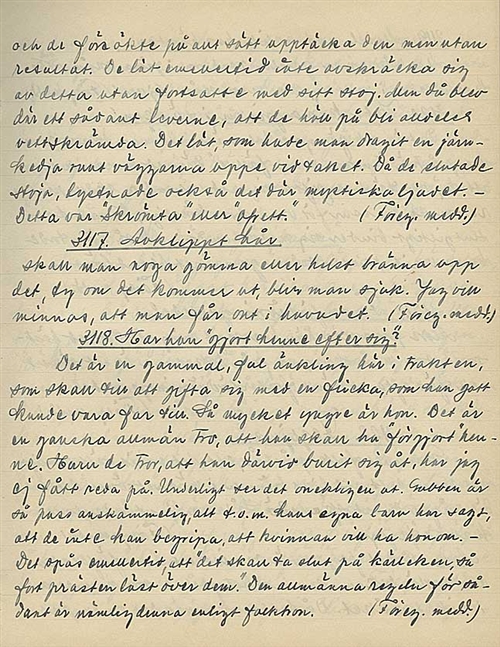 och de försökte på allt sätt upptäcka den men utan
resultat. De lät emellertid inte avskräcka sig
av detta utan fortsatte med sitt stoj. Men då blev
där ett sådant leverne, att de höll på bli alldeles
vettskrämda. Det lät, som hade man dragit en järn-
kedja runt väggarna uppe vid taket. Då de slutade
stoja, tystnade också det där mystiska ljudet. –
Detta var "Skrömta" eller "oyett." (Föreg. medd.)
3117. Avklippt hår
skall man noga gömma eller helst bränna upp
det, ty om det kommer ut, blir man sjuk. Jag vill
minnas, att man får ont i huvudet. (Föreg. medd.)
3118. Har han "gjort henne efter sig"?
Det är en gammal, ful änkling här i trakten,
som skall till att gifta sig med en flicka, som han gott
kunde vara far till. Så mycket yngre är hon. Det är
en ganska allmän tro, att han skall ha "förgjort" hen-
ne. Huru de tror, att han därvid burit sig åt, har jag
ej fått reda på. Underligt ser det onekligen ut. Gubben är
så pass anskämmelig, att t.o.m. hans egna barn har sagt,
att de inte kan begripa, att kvinnan vill ha honom. –
Det spås emellertid, att "det skall ta slut på kärleken, så
fort prästen läst över dem." Den allmänna regeln för så-
dant är nämligen denna enligt folktron. (Föreg. medd.)